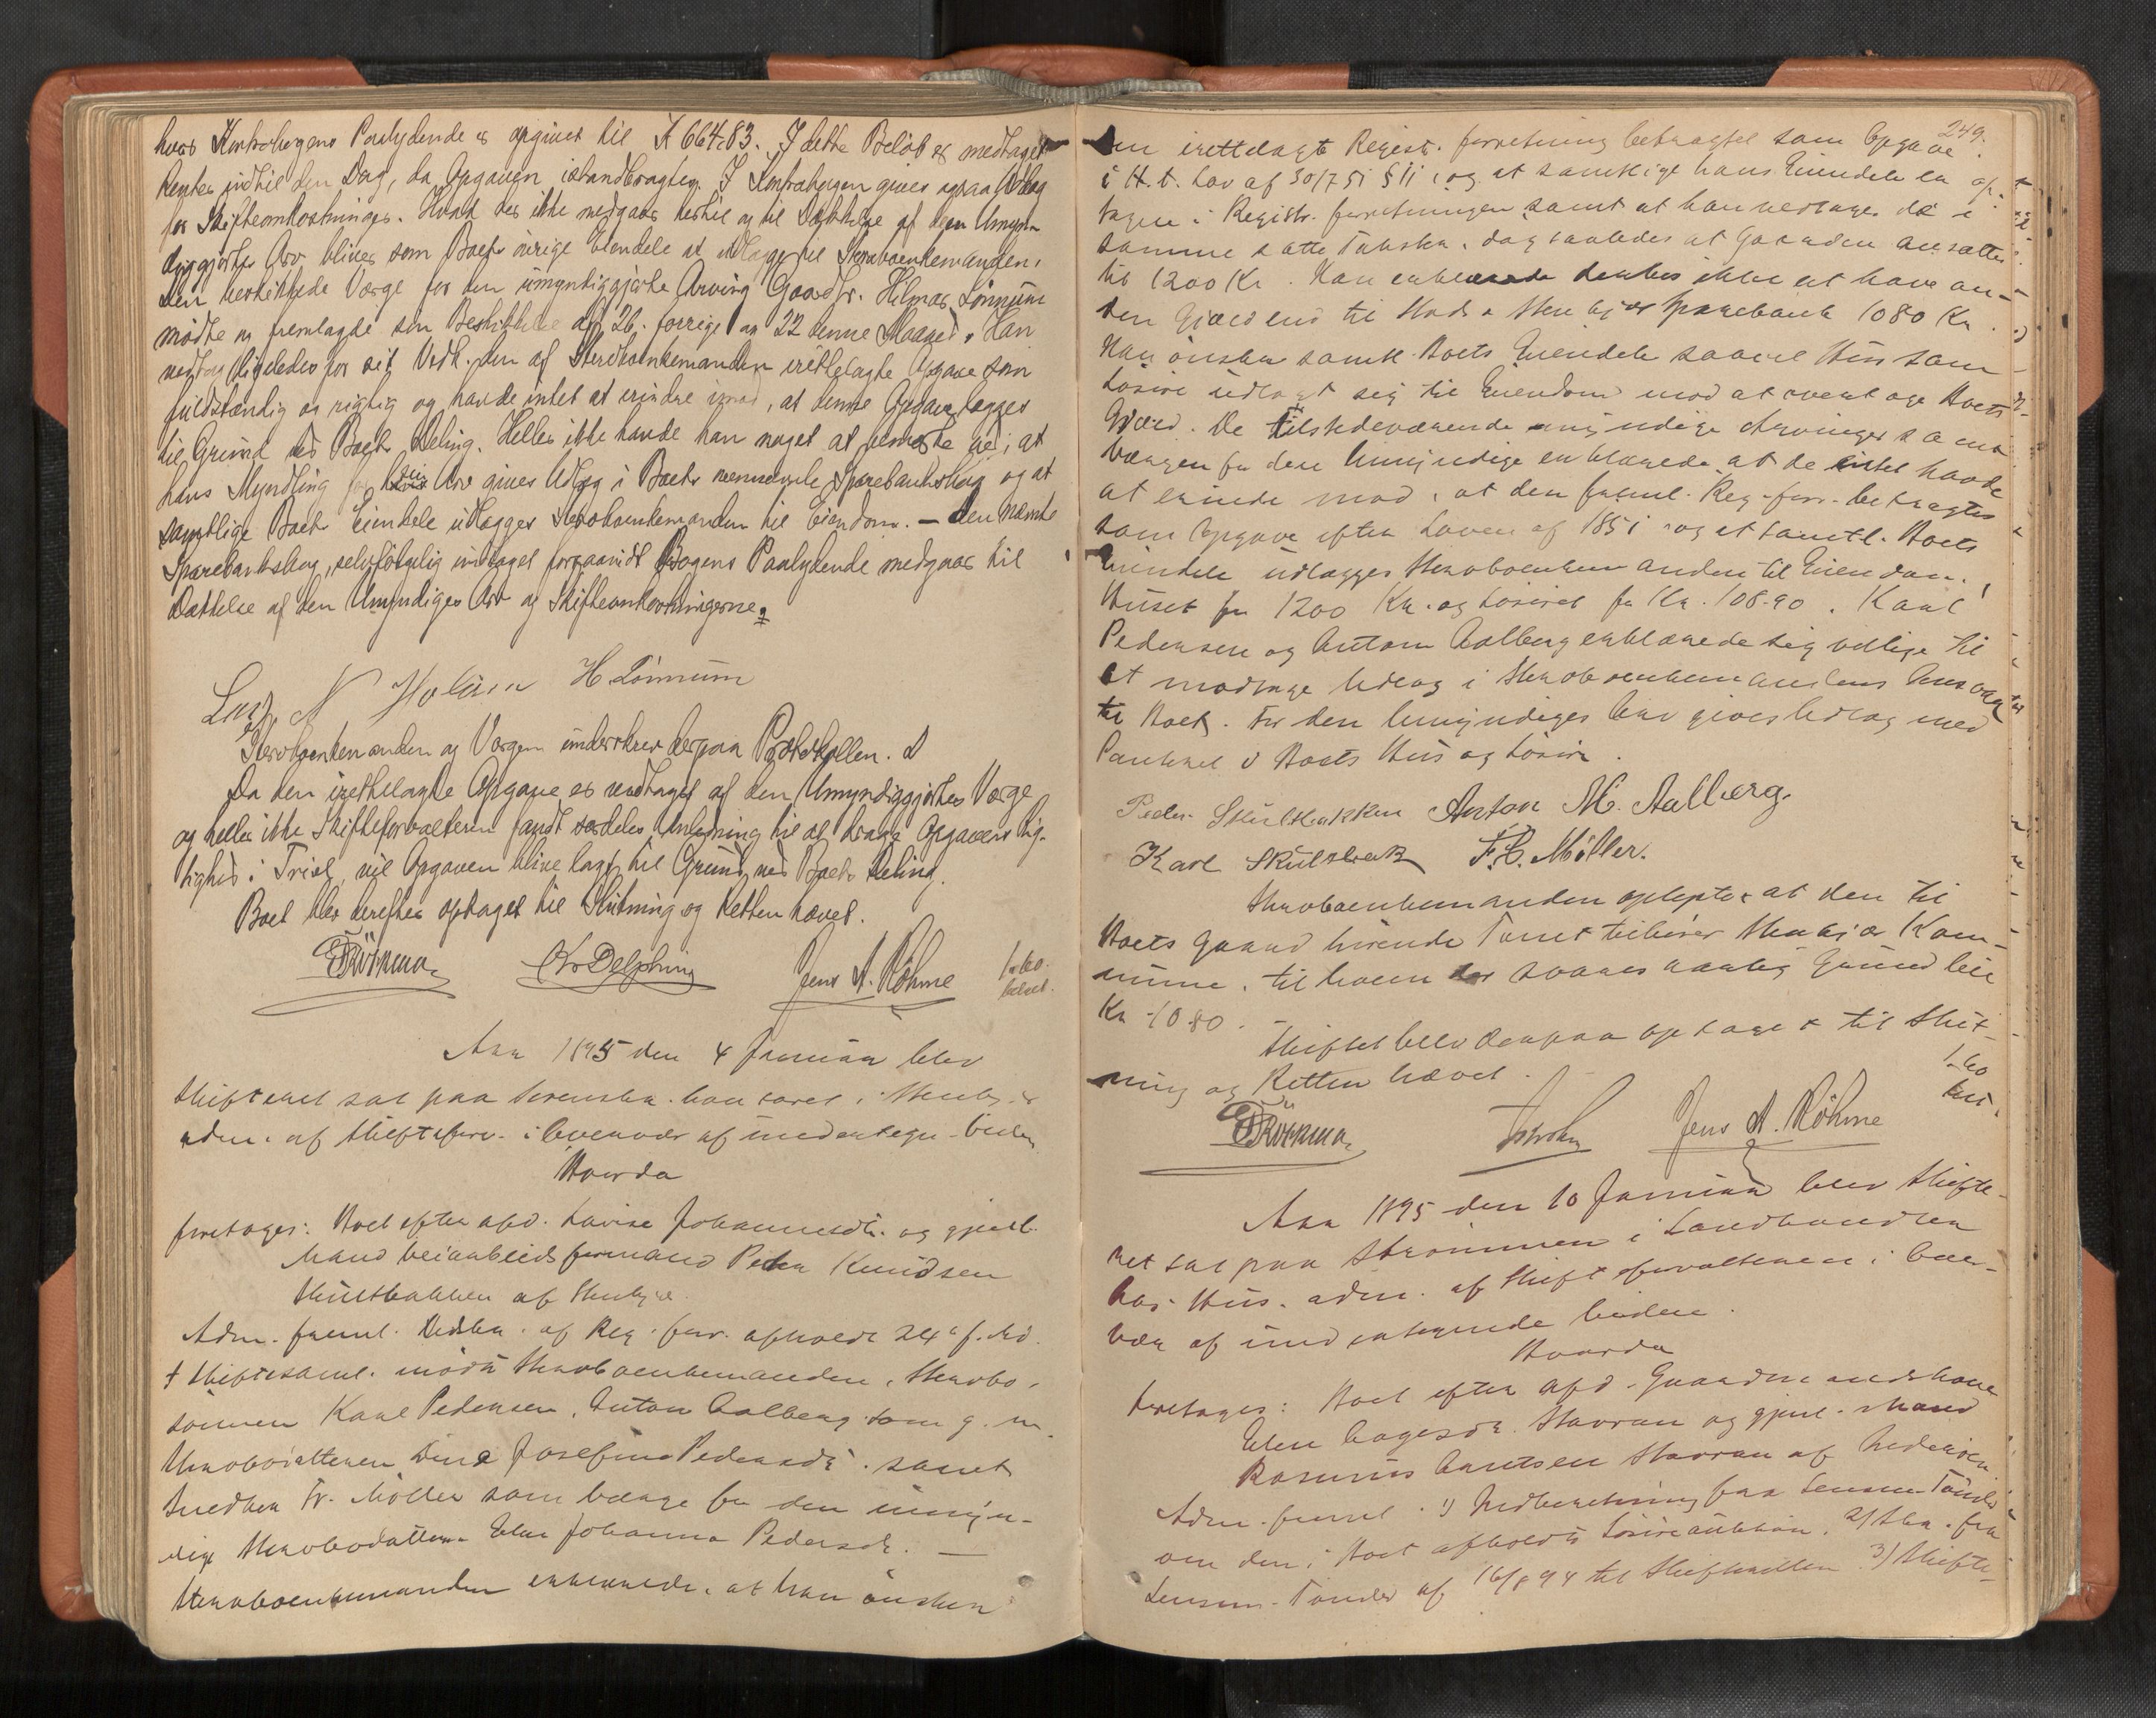 hvis Kontrabogens Paalydende er opgivet til K 664.83. I dette Beløb er medtaget
Renter indtil den Dag, da Opgaven istandbragtes. I Kontrabogen gives ogsaa Udlæg
for Skifteomkostninger. Hvad der ikke medgaar hertil og til Dækkelse af den Umyn-
diggjortes Arv bliver som Boets øvrige Eiendele at udlægge til Stervboenkemanden.
Den beskikkede Værge for den umyndiggjorte Arving Gaardbr. Hilmar Lønnum
mødte og fremlagde sin Beskikkelse af 26. forrige og 22 denne Maaned. Han
vedtog ligeledes for sit Vedk. den af Stervboenkemanden irettelagte Opgave som
fuldstændig og rigtig og havde intet at erindre imod, at denne Opgave lægges
til Grund ved Boets Deling. Heller ikke havde han noget at bemærke ved, at
hans Myndling for sin Arv gives Udlæg i Boets nævnte Sparebanksbog og at
samtlige Boets Eiendele udlægges Stervboenkemanden til Eiendom. — Den nævnte
Sparebanksbog, selvfølgelig undtaget forsaavidt Bogens Paalydende medgaar til
Dækkelse af den Umyndiges Arv og Skifteomkostningerne.
H Lønnum
Stervboenkemanden og Værgen underskrev derpaa Protokollen.
Da den irettelagte Opgave er vedtaget af den Umyndiggjortes Værge
og heller ikke Skifteforvalteren fandt særdeles Anledning til at drage Opgavens Rig-
tighed i Tvivl, vil Opgaven blive lagt til Grund ved Boets Deling.
Boet blev derefter optaget til Slutning og Retten hævet.
Kr Delphin Jens A. Røhme 1-60
betalt.
Aar 1895 den 4 Januar blev
Skifteret sat paa Sorenskr. kontoret i Stenkj.
adm. af Skifteforv. i Overvær af undertegn. Vidner
Hvorda
foretages: Boet efter afd. Lovise Johannesdtr. og gjenl.
Mand Veiarbeidsformand Peder Knudsen
Skulstbakken af Stenkjer.
Adm. freml. Udskr. af Reg. forr. afholdt 24de f. Md.
I Skiftesaml. mødte Stervboenkemanden, Stervbo-
sønnen Karl Pedersen, Anton Aalberg som g. m.
Stervbodatteren Dina Josefine Pedersdtr. samt
Snedker Fr. Møller som Værge for den umyn-
dige Stervbodatter Eline Johanna Pedersdtr. —
Stervboenkemanden erklærede, at han ønsker
249.
den irettelagte Regist. forretning betragtet som Opgave
i H. t. Lov af 30/7 51 § 11, og at samtlige hans Eiendele er op-
tagne i Registr. forretningen samt at han vedtager de i
samme satte Takster, dog saaledes at Gaarden ansættes
til 1200 Kr. Han erklærede derhos ikke at have an-
den Gjæld end til Stods & Stenkjær Sparebank 1080 Kr.
Han ønsker samtl. Boets Eiendele saavel Hus som
Løsøre udlagt sig til Eiendom mod at overtage Boets
Gjæld. De tilstedeværende myndige Arvinger samt
Værgen for den Umyndige erklærede at de intet havde
at erindre mod, at den freml. Reg. forr. betragtes
som Opgave efter Loven af 1851 og at samtl. Boets
Eiendele udlægges Stervboenkemanden til Eiendom,
Huset for 1200 Kr. og Løsøret for Kr. 108.90. Karl
Pedersen og Anton Aalberg erklærede sig villige til
at modtage Udlæg i Stervboenkemandens Ansvar
til Boet. For den Umyndiges Arv gives Udlæg med
Panteret i Boets Hus og Løsøre.
Peder Skulstbakken Anton M. Aalberg.
Karl Skulstbak F. C. Møller.
Stervboenkemanden oplyste, at den til
Boets Gaard hørende Tomt tilhører Stenkjær Kom-
mune, til hvem der svares aarlig Grundleie
Kr 10.80.
Skiftet blev derpaa optaget til Slut-
ning og Retten hævet.
1-60
Jens A. Røhme
Aar 1895 den 10 Januar blev Skifte-
ret sat paa Strømmen i Landhandler
Hus, adm. af Skifteforvalteren i Over-
vær af undertegnede Vidner.
Hvorda
foretages: Boet efter afd. Gaardmandskone
Elen Aagesdtr. Stavran og gjenl. Mand
Rasmus Arntsen Stavran af
Adm. freml. 1) Indberetning fra Lensm. Tønder
om den i Boet afholdte Løsøreauktion. 2) Skr. fra
Lensm. Tønder af 16/8 94 til Skifteretten 3) Skifte-